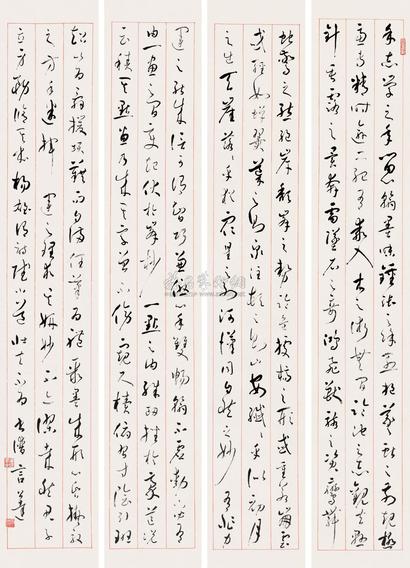 余志學之年留心翰墨味鍾張之餘烈挹羲獻之前規極
慮專精時逾二紀有乖入木之術無間臨池之志觀夫懸
針垂露之異奔雷墜石之奇鴻飛獸駭之資鸞舞
蛇驚之態絕岸頹峰之勢臨危據槁之形或重若崩雲
或輕如蟬翼導之則泉注頓之則山安纖纖乎似初月
之出天崖落落乎猶眾星之列河漢同自然之妙有非力
運之能成信可謂智巧兼優心手雙暢翰不虛動下必有
由一畫之間變起伏於峰杪一點之內殊衄挫於豪芒況
云積其點畫乃成其字曾不傍窺尺牘俯習寸陰引班
超以為辭援項籍而自滿任筆為體聚墨成形心昏擬效
之方手迷揮運之理求其妍妙不亦謬哉然君子
立身務修其本楊雄謂詩賦小道壯夫不為